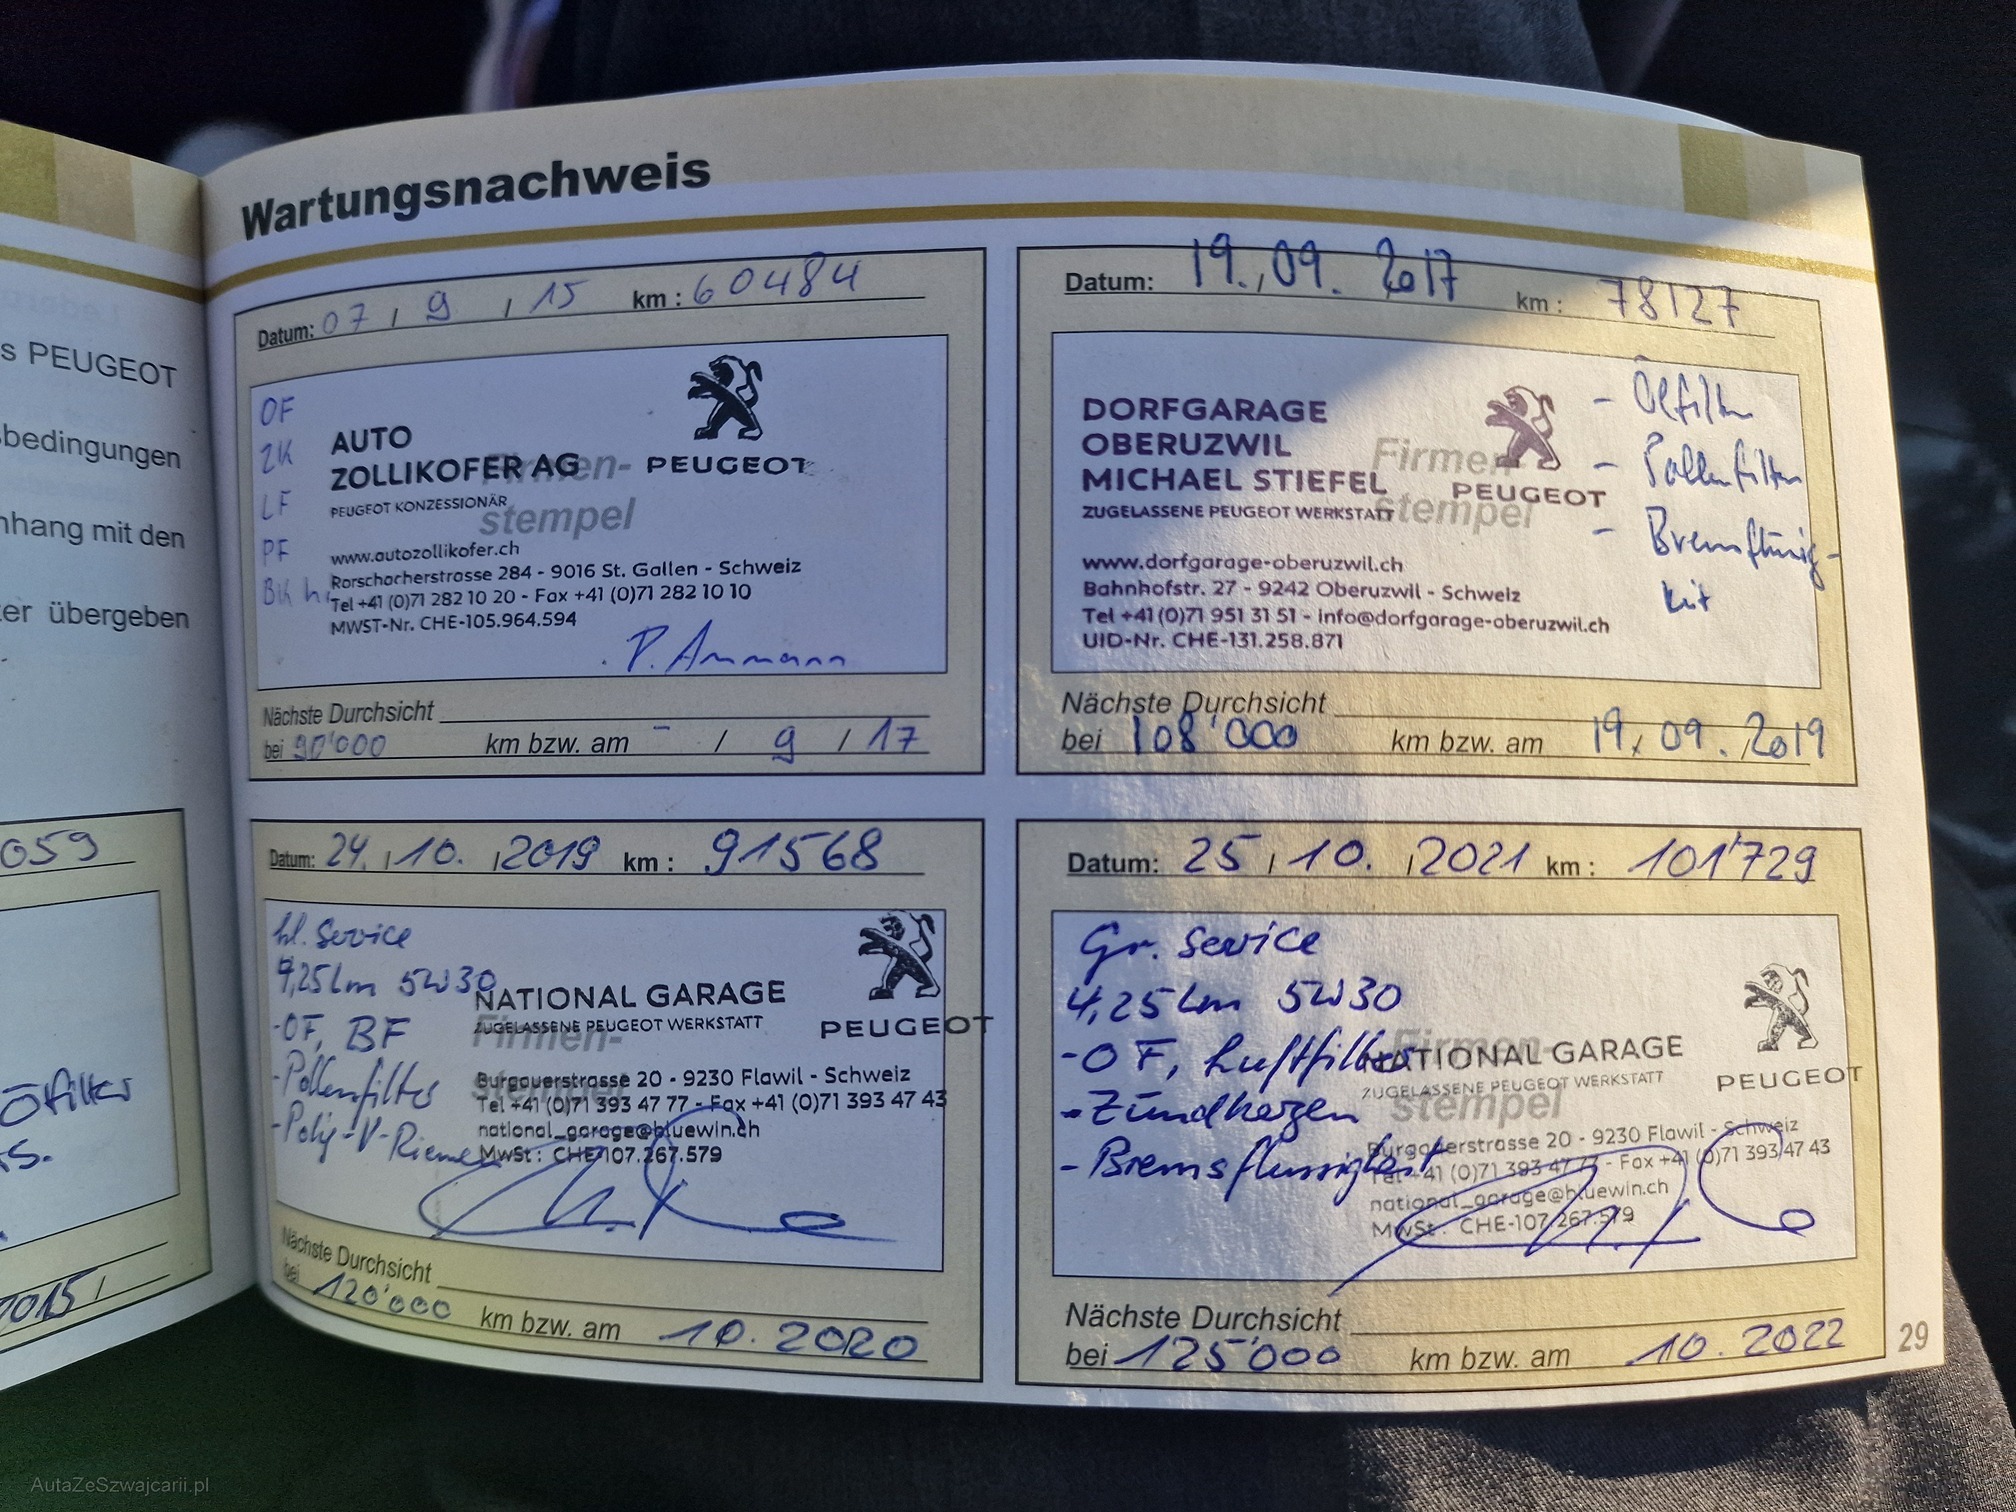 s PEUGEOT
bedingungen
nhang mit den
ter übergeben
059
Ölfilter
s.
2015/
Wartungsnachweis
Datum: 07 / 9 / 15 km : 60484
OF
ZK
LF
PF
BK
AUTO
ZOLLIKOFER AG
PEUGEOT KONZESSIONÄR
PEUGEOT
Firmen-
stempel
www.autozollikofer.ch
Rorschacherstrasse 284 - 9016 St. Gallen - Schweiz
Tel +41 (0)71 282 10 20 - Fax +41 (0)71 282 10 10
MWST-Nr. CHE-105.964.594
P. Ammann
Nächste Durchsicht
bei 90'000 km bzw. am - / 9 / 17
Datum: 19., 09. 2017 km : 78127
DORFGARAGE
OBERUZWIL
MICHAEL STIEFEL
ZUGELASSENE PEUGEOT WERKSTATT
PEUGEOT
Firmen-
stempel
www.dorfgarage-oberuzwil.ch
Bahnhofstr. 27 - 9242 Oberuzwil - Schweiz
Tel +41 (0)71 951 31 51 - info@dorfgarage-oberuzwil.ch
UID-Nr. CHE-131.258.871
- Ölfilter
- Pollenfilter
- Bremsflüssig-
keit
Nächste Durchsicht
bei 108'000 km bzw. am 19, 09. 2019
Datum: 24. / 10. / 2019 km : 91568
kl. Service
4,25 Ltn 5W30
-OF, BF
-Pollenfilter
-Poly-V-Riemen
NATIONAL GARAGE
ZUGELASSENE PEUGEOT WERKSTATT
PEUGEOT
Firmen-
stempel
Burgauerstrasse 20 - 9230 Flawil - Schweiz
Tel +41 (0)71 393 47 77 - Fax +41 (0)71 393 47 43
national_garage@bluewin.ch
MwSt : CHE-107.267.579
Nächste Durchsicht
bei 120'000 km bzw. am 10. 2020
Datum: 25 / 10. / 2021 km : 101'729
Gr. Service
4,25 Ltn 5W30
-OF, Luftfilter
-Zündkerzen
-Bremsflussigkeit
NATIONAL GARAGE
ZUGELASSENE PEUGEOT WERKSTATT
PEUGEOT
Firmen-
stempel
Burgauerstrasse 20 - 9230 Flawil - Schweiz
Tel +41 (0)71 393 47 77 - Fax +41 (0)71 393 47 43
national_garage@bluewin.ch
MwSt : CHE-107.267.579
Nächste Durchsicht
bei 125'000 km bzw. am 10. 2022
29
AutaZeSzwajcarii.pl